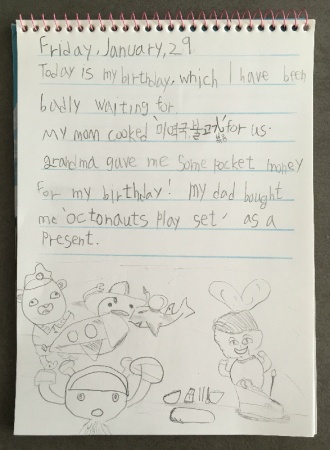 Friday, January, 29
Today is my birthday, which I have been
badly waiting for.
My mom cooked '미역국, 불고기' for us.
grandma gave me some pocket money
for my birthday! My dad bought
me 'octonauts play set' as a
present.